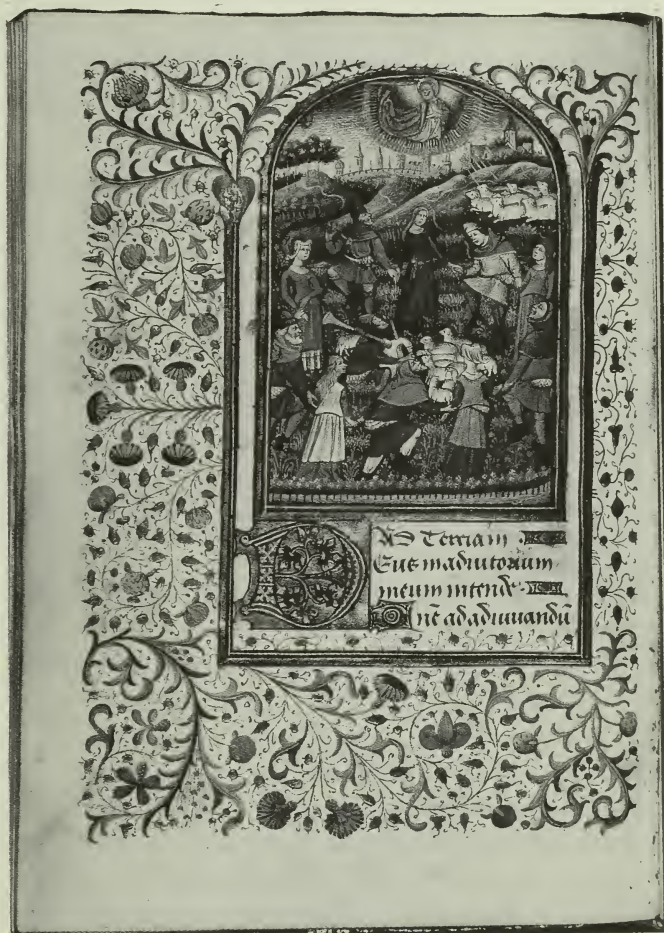 AD Terciam
Deus in adiutorium
meum intende.
Dn̄e ad adiuuandū